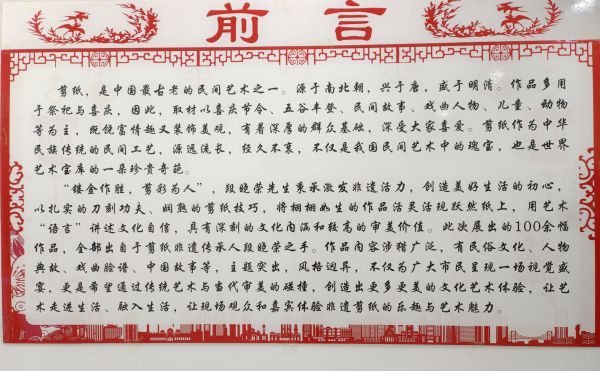 前言
剪纸，是中国最古老的民间艺术之一。源于南北朝，兴于唐，盛于明清。作品多用
于祭祀与喜庆，因此，取材以喜庆节令、五谷丰登、民间故事、戏曲人物、儿童、动物
等为主，既饶富情趣又装饰美观，有着深厚的群众基础，深受大家喜爱。剪纸作为中华
民族传统的民间工艺，源远流长，经久不衰，不仅是我国民间艺术中的瑰宝，也是世界
艺术宝库的一朵珍贵奇葩。
“镂金作胜，剪彩为人”，段晓荣先生秉承激发非遗活力，创造美好生活的初心，
以扎实的刀刻功夫、娴熟的剪纸技巧，将栩栩如生的作品活灵活现跃然纸上，用艺术
“语言”讲述文化自信，具有深刻的文化内涵和较高的审美价值。此次展出的100余幅
作品，全部出自于剪纸非遗传承人段晓荣之手。作品内容涉猎广泛，有民俗文化、人物
典故、戏曲脸谱、中国故事等，主题突出，风格迥异，不仅为广大市民呈现一场视觉盛
宴，更是希望通过传统艺术与当代审美的碰撞，创造出更多更美的文化艺术体验，让艺
术走进生活、融入生活，让现场观众和嘉宾体验非遗剪纸的乐趣与艺术魅力。